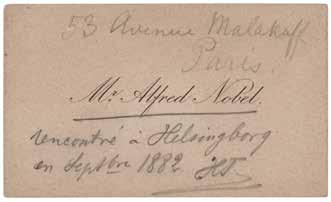 53 Avenue Malakoff
Paris.
Mr. Alfred Nobel.
rencontré à Helsingborg
en Septbre 1882